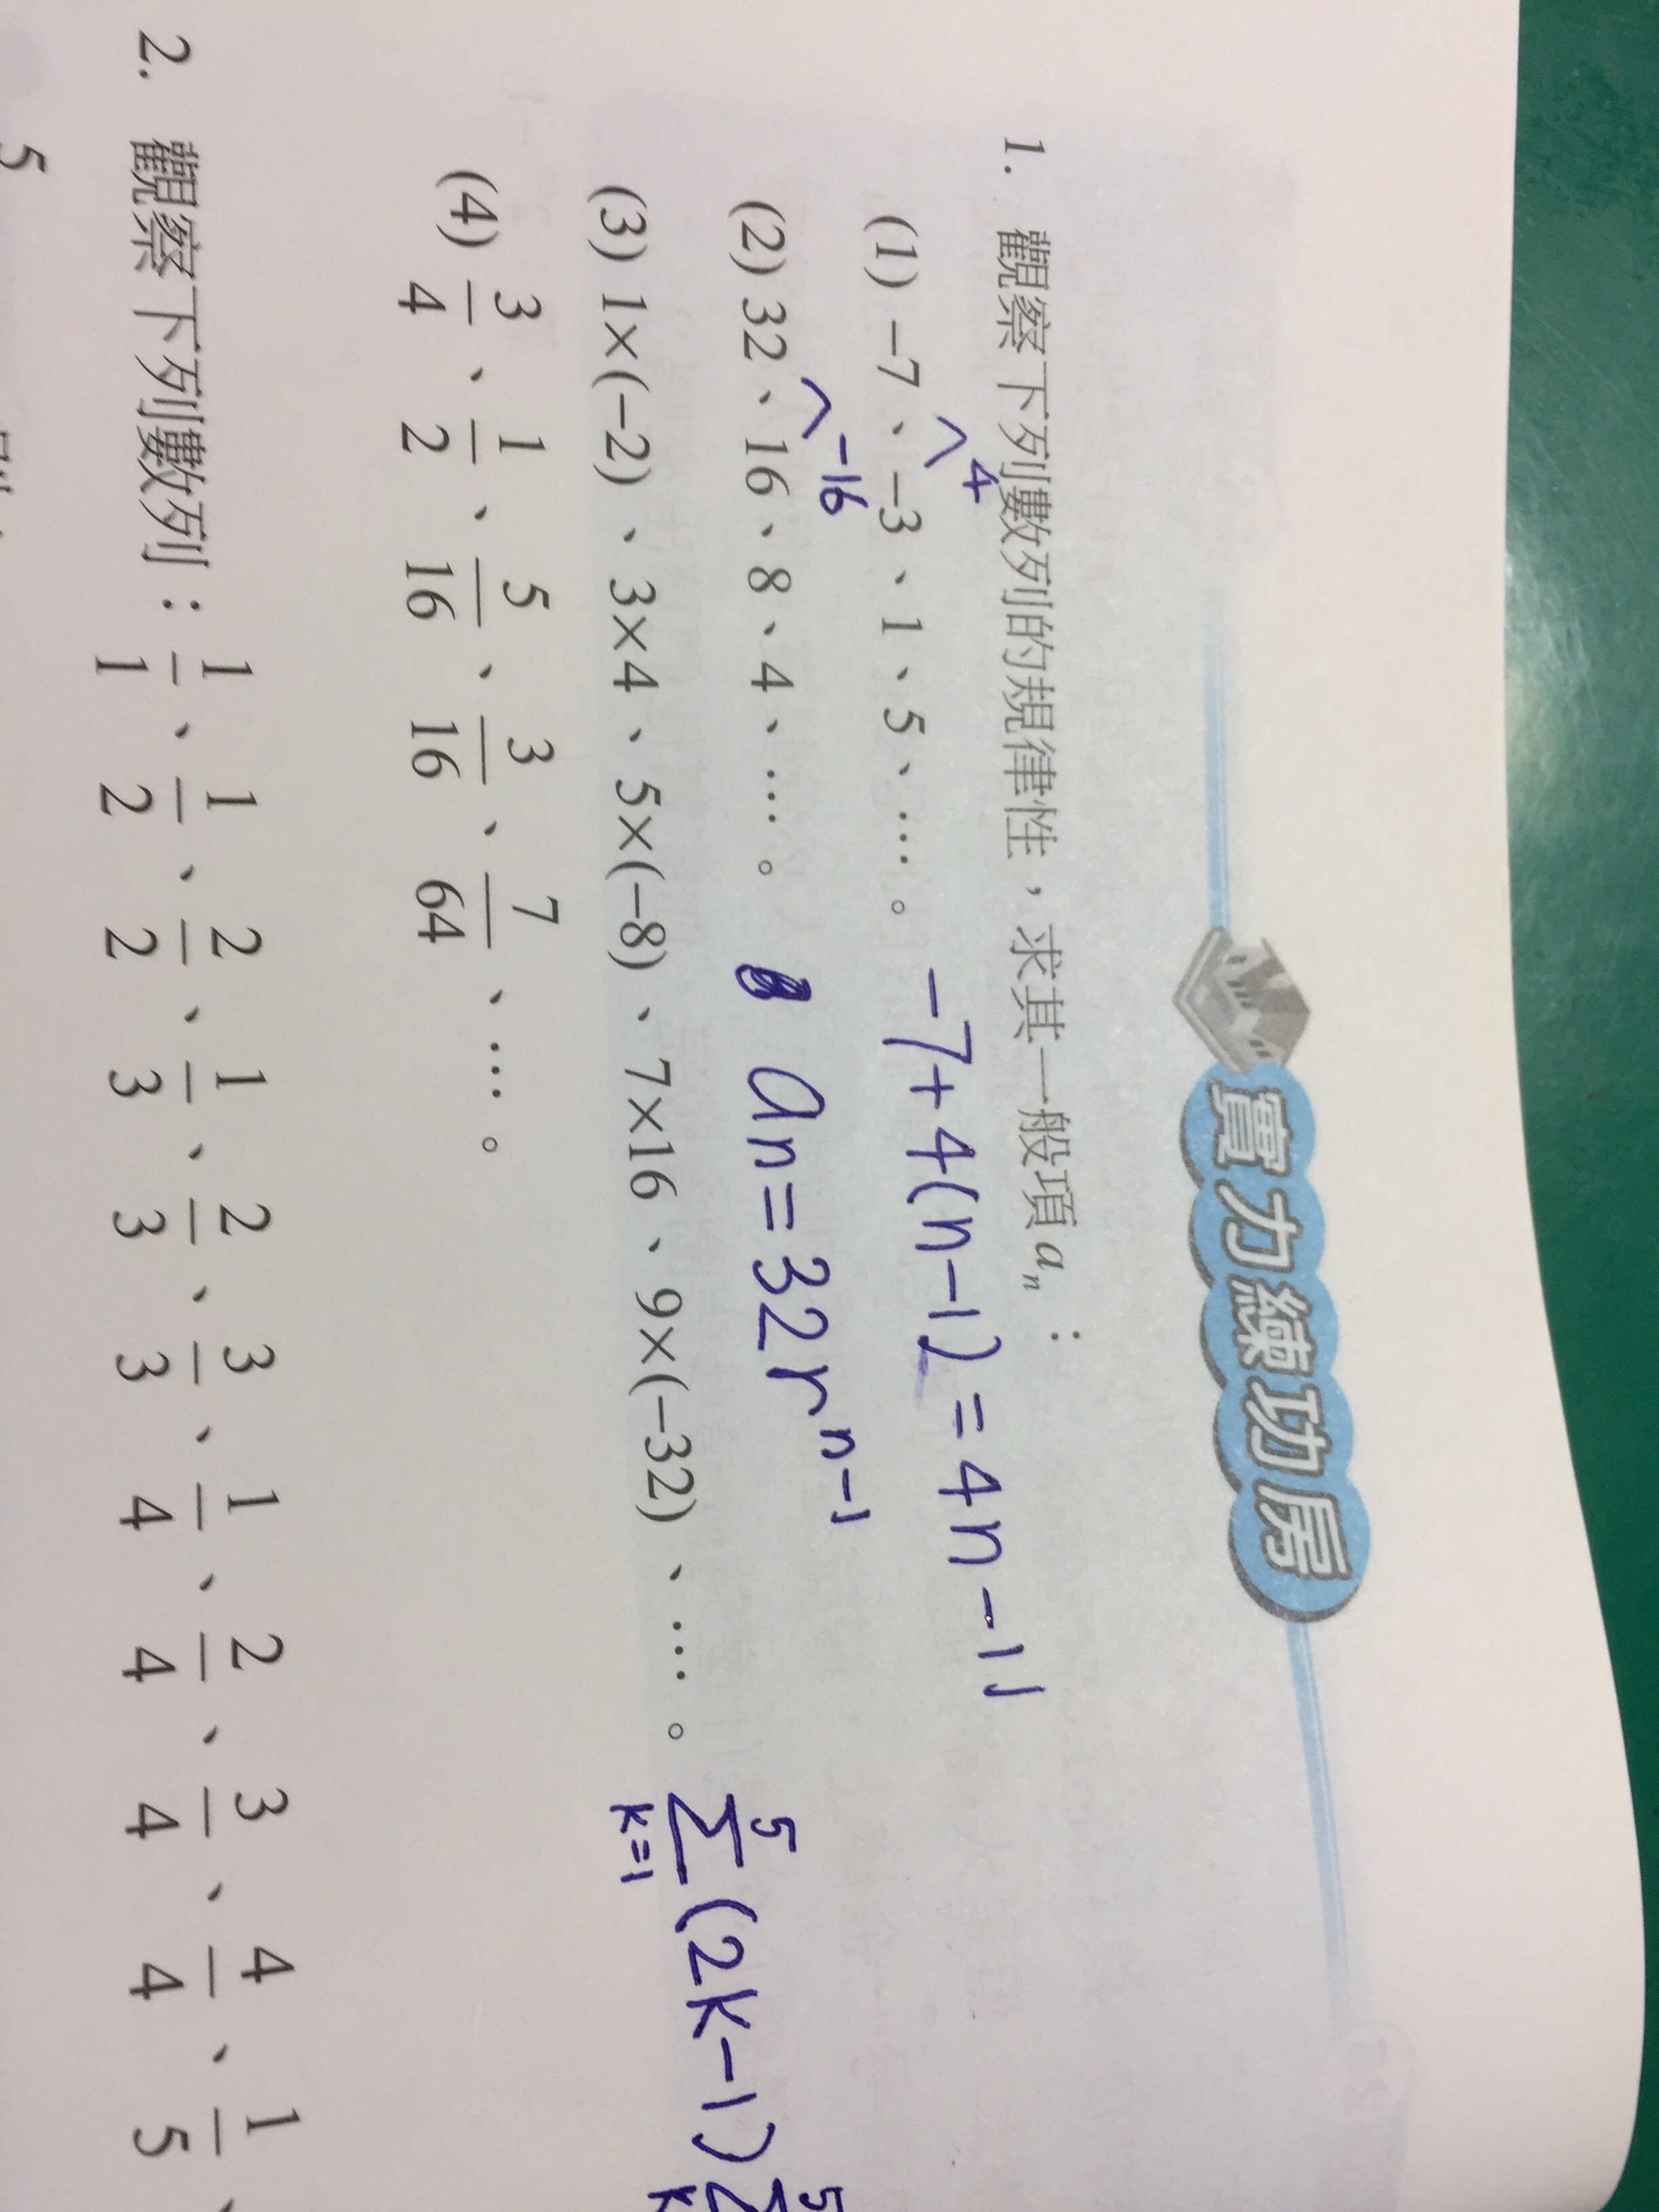 實力練功房
1. 觀察下列數列的規律性，求其一般項 aₙ：
4
(1) −7、−3、1、5、…。 −7+4(n−1)=4n−11
−16
(2) 32、16、8、4、…。 an=32r^{n−1}
(3) 1×(−2)、3×4、5×(−8)、7×16、9×(−32)、…。 \sum_{k=1}^{5}(2k−1)
(4) 3/4、1/2、5/16、3/16、7/64、…。
2. 觀察下列數列：1/1、1/2、2/2、1/3、2/3、3/3、1/4、2/4、3/4、4/4、1/5、
5